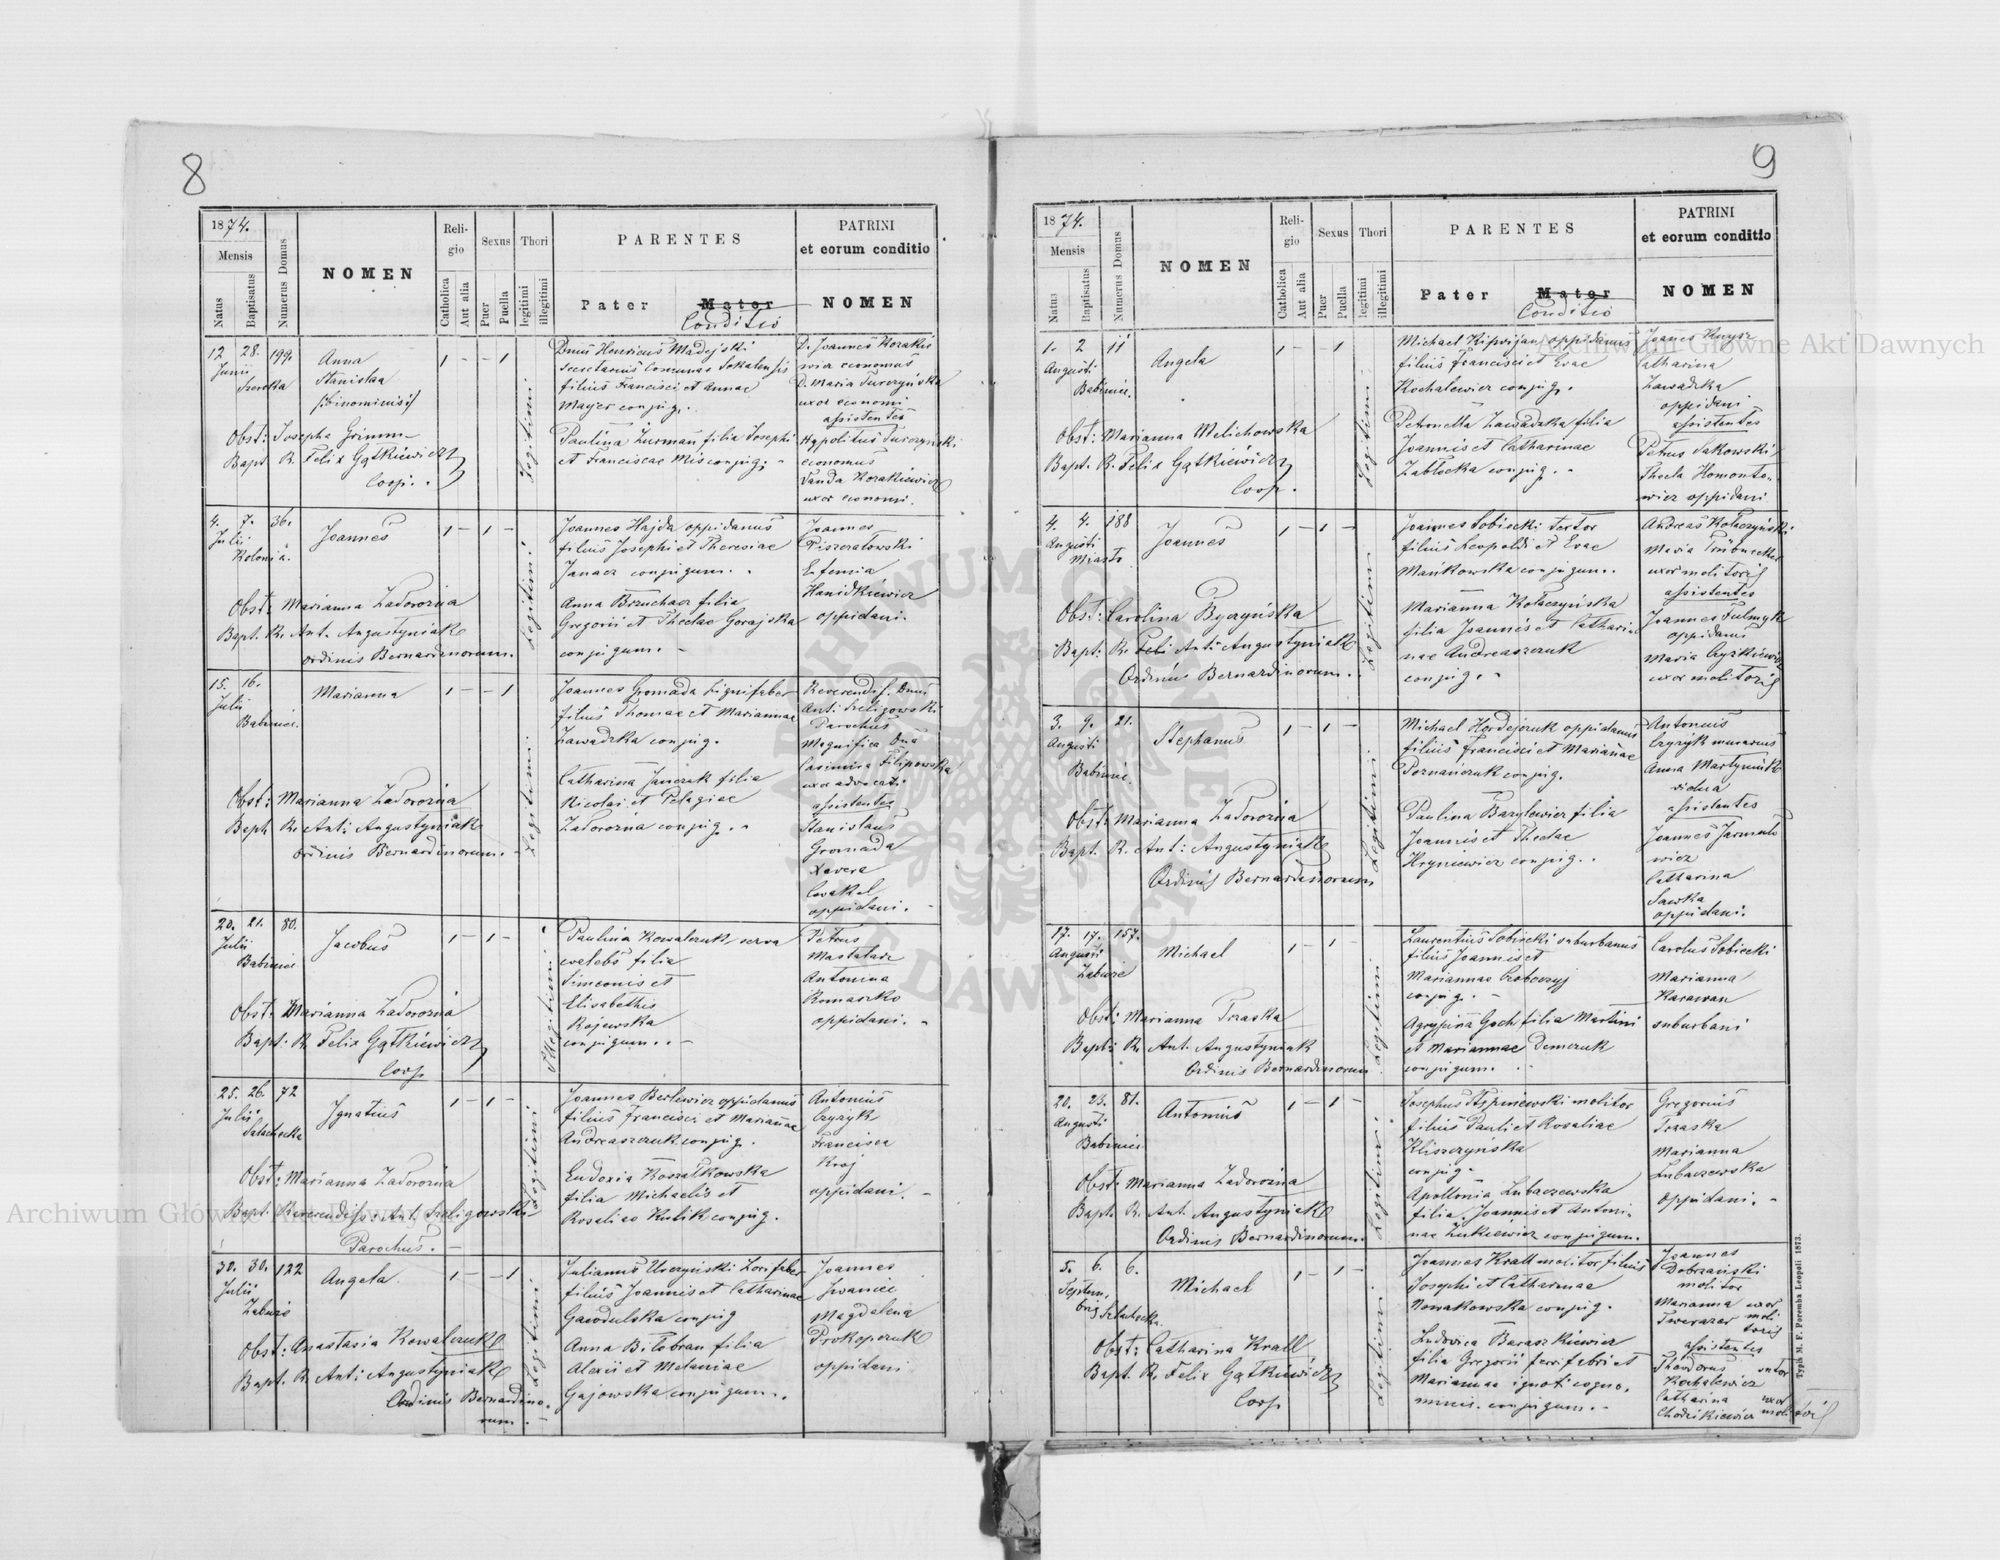 8
1874.
Mensis
Natus
Baptisatus
Numerus Domus
NOMEN
Religio
Catholica
Aut alia
Sexus
Puer
Puella
Thori
legitimi
illegitimi
PARENTES
Pater
Mater
Conditio
PATRINI
et eorum conditio
NOMEN
12 28. 199.
Junii
Anna
Stanislaa
(:binominis:)
1 - - 1
Obst: Josepha Grimm
Bapt. R. Felix Gątkiewicz
Coop.
Legitimi
Dnus Henricus Madejski
Secretarius Comunae Sokalensis
filius Francisci et Annae
Mayer conjug.
Paulina Zurman filia Josephi
et Franciscae Mis conjug. -
D. Joannes Korakie
wicz economus
D. Maria Turczyńska
uxor economi
assistentes
Hypolitus Turczynski
economus
Vanda Korakiewicz
uxor economi.
4. 7. 36.
Julii
Kolonia.
Joannes
1 - 1 -
Obst: Marianna Zadorożna
Bapt. R. Ant. Augustyniak
Ordinis Bernardinorum.
Legitimi
Joannes Hajda oppidanus
filius Josephi et Theresiae
Janacz conjugum.
Anna Brzuchacz filia
Gregorii et Theclae Gorajska
conjugum. -
Joannes
Piszczatowski
Eufemia
Hanidkiewicz
oppidani.
15. 16.
Julii
Babiniec.
Marianna
1 - - 1
Obst: Marianna Zadorożna
Bapt R. Ant: Augustyniak
Ordinis Bernardinorum. -
Legitimi
Joannes Gromada Lignifaber
filius Thomae et Mariannae
Zawadzka conjug.
Catharina Janczuk filia
Nicolai et Pelagiae
Zadorożna conjug. -
Reverendss. Dnus
Ant: Szeligowski
Parochus
Magnifica Dna
Casimira Filipowska
uxor advocati
assistentes
Stanislaus
Gromada
Xavera
oppidani. -
20. 21. 80.
Julii
Babiniec
Jacobus
1 - 1 -
Obst: Marianna Zadorożna
Bapt: R. Felix Gątkiewicz
Coop
Illegitimi
Paulina Kowalczuk serva
coelebs filia
Simeonis et
Elisabethis
Rajewska
conjugum. -
Petrus
Mastalarz
Antonina
Romaszko
oppidani. -
25. 26. 72
Julii
Ignatius
1 - 1 -
Obst: Marianna Zadorożna
Bapt. Reverendisso Ant. Szeligowski
Parochus. -
Legitimi
Joannes Berlewicz oppidanus
filius Francisci et Mariannae
Andreaszczuk conjug.
Eudoxia Kossatkowska
filia Michaelis et
Rosaliae Kulik conjug.
Antonius
Czyzyk
Francisca
Kraj
oppidani. -
30. 30. 122
Julii
Zabuże
Angela.
1 - - 1
Obst: Anastasia Kowalczuk
Bapt. R. Ant: Augustyniak
Ordinis Bernardino-
rum. -
Legitimi
Julianus Uszyński Lorifaber
filius Joannis et Catharinae
Gawdulska conjug
Anna Biłobran filia
Alexii et Melaniae
Gajowska conjugum.
Joannes
Iwaniec
Magdalena
Prokopczuk
oppidani
9
1874.
Mensis
Natus
Baptisatus
Numerus Domus
NOMEN
Religio
Catholica
Aut alia
Sexus
Puer
Puella
Thori
legitimi
illegitimi
PARENTES
Pater
Mater
Conditio
PATRINI
et eorum conditio
NOMEN
1. 2 11
Augusti
Babiniec.
Angela
1 - - 1
Obst: Marianna Melichowska
Bapt. R. Felix Gątkiewicz
Coop.
Legitimi
oppidanus
filius Francisci et Evae
Kochalewicz conjug.
Petronella Zawadzka filia
Joannis et Catharinae
Zabłocka conjug. -
Joannes
Catharina
Zawadzka
oppidani
assistentes
Petrus Sakowski
Thecla Homonto-
wicz oppidani
4. 4. 188
Augusti
Miasto
Joannes
1 - 1 -
Obst: Carolina Byczyńska
Bapt: R. Ant: Augustyniak
Ordinis Bernardinorum.
Legitimi
Joannes Sobiecki tortor
filius Leopoldi et Evae
Mankowska conjugum.
Marianna Kołaczyńska
filia Joannis et Cathari
nae Andreaszczuk
conjug. -
Andreas Kołaczyński
Maria
uxor molitoris
assistentes
Joannes Fulmyk
oppidani
Maria Czyżkiewicz
uxor molitoris
3. 9. 21.
Augusti
Babiniec.
Stephanus
1 - 1 -
Obst: Marianna Zadorożna
Bapt. R. Ant: Augustyniak
Ordinis Bernardinorum
Legitimi
Michael Hordejczuk oppidanus
filius Francisci et Mariannae
Poznańczuk conjug.
Paulina Barylewicz filia
Joannis et Theclae
Hryniewicz conjug.
Antonius
Czyzyk murarius
Anna Martyniuk
vidua
assistentes
Joannes Jarmuło
wicz
Catharina
Sawka
oppidani.
17. 17. 157.
Augusti
Zabuże
Michael
1 - 1 -
Obst: Marianna Traska
Bapt: R. Ant. Augustyniak
Ordinis Bernardinorum
Legitimi
Laurentius Sobiecki suburbanus
filius Joannis et
Mariannae
conjug. -
Agrypina Goch filia Martini
et Mariannae Demczuk
conjugum.
Carolus Sobiecki
Marianna
Karawan
suburbani
20. 23. 81.
Augusti
Babiniec
Antonius
1 - 1 -
Obst: Marianna Zadorożna
Bapt. R. Ant. Augustyniak
Ordinis Bernardinorum.
Legitimi
Josephus Stępniewski molitor
filius Pauli et Rosaliae
Kliszczyńska
conjug.
Apollonia Lubaczewska
filia Joannis et Antoni-
nae Lukiewicz conjugum.
Gregorius
Traska
Marianna
Lubaczewska
oppidani. -
5. 6. 6.
Septem,
bris Szlachecka
Michael
1 - 1 -
Obst: Catharina Krall
Bapt. R. Felix Gątkiewicz
Coop
Legitimi
Joannes Krall molitor filius
Josephi et Catharinae
Nowakowska conjug.
Ludovica Baraszkiewicz
filia Gregorii ferrifabri et
Mariannae ignoti cogno-
minis. conjugum. -
Joannes
Dobrzański
molitor
Marianna uxor
moli
toris
assistentes
Theodorus sutor
Kochalewicz
Catharina uxor
Chodzikiewicz molitoris
Typis M. F. Poremba Leopoli 1873.
Archiwum Główne Akt Dawnych
Archiwum Główne Akt Dawnych
ARCHIWUM GŁÓWNE AKT DAWNYCH